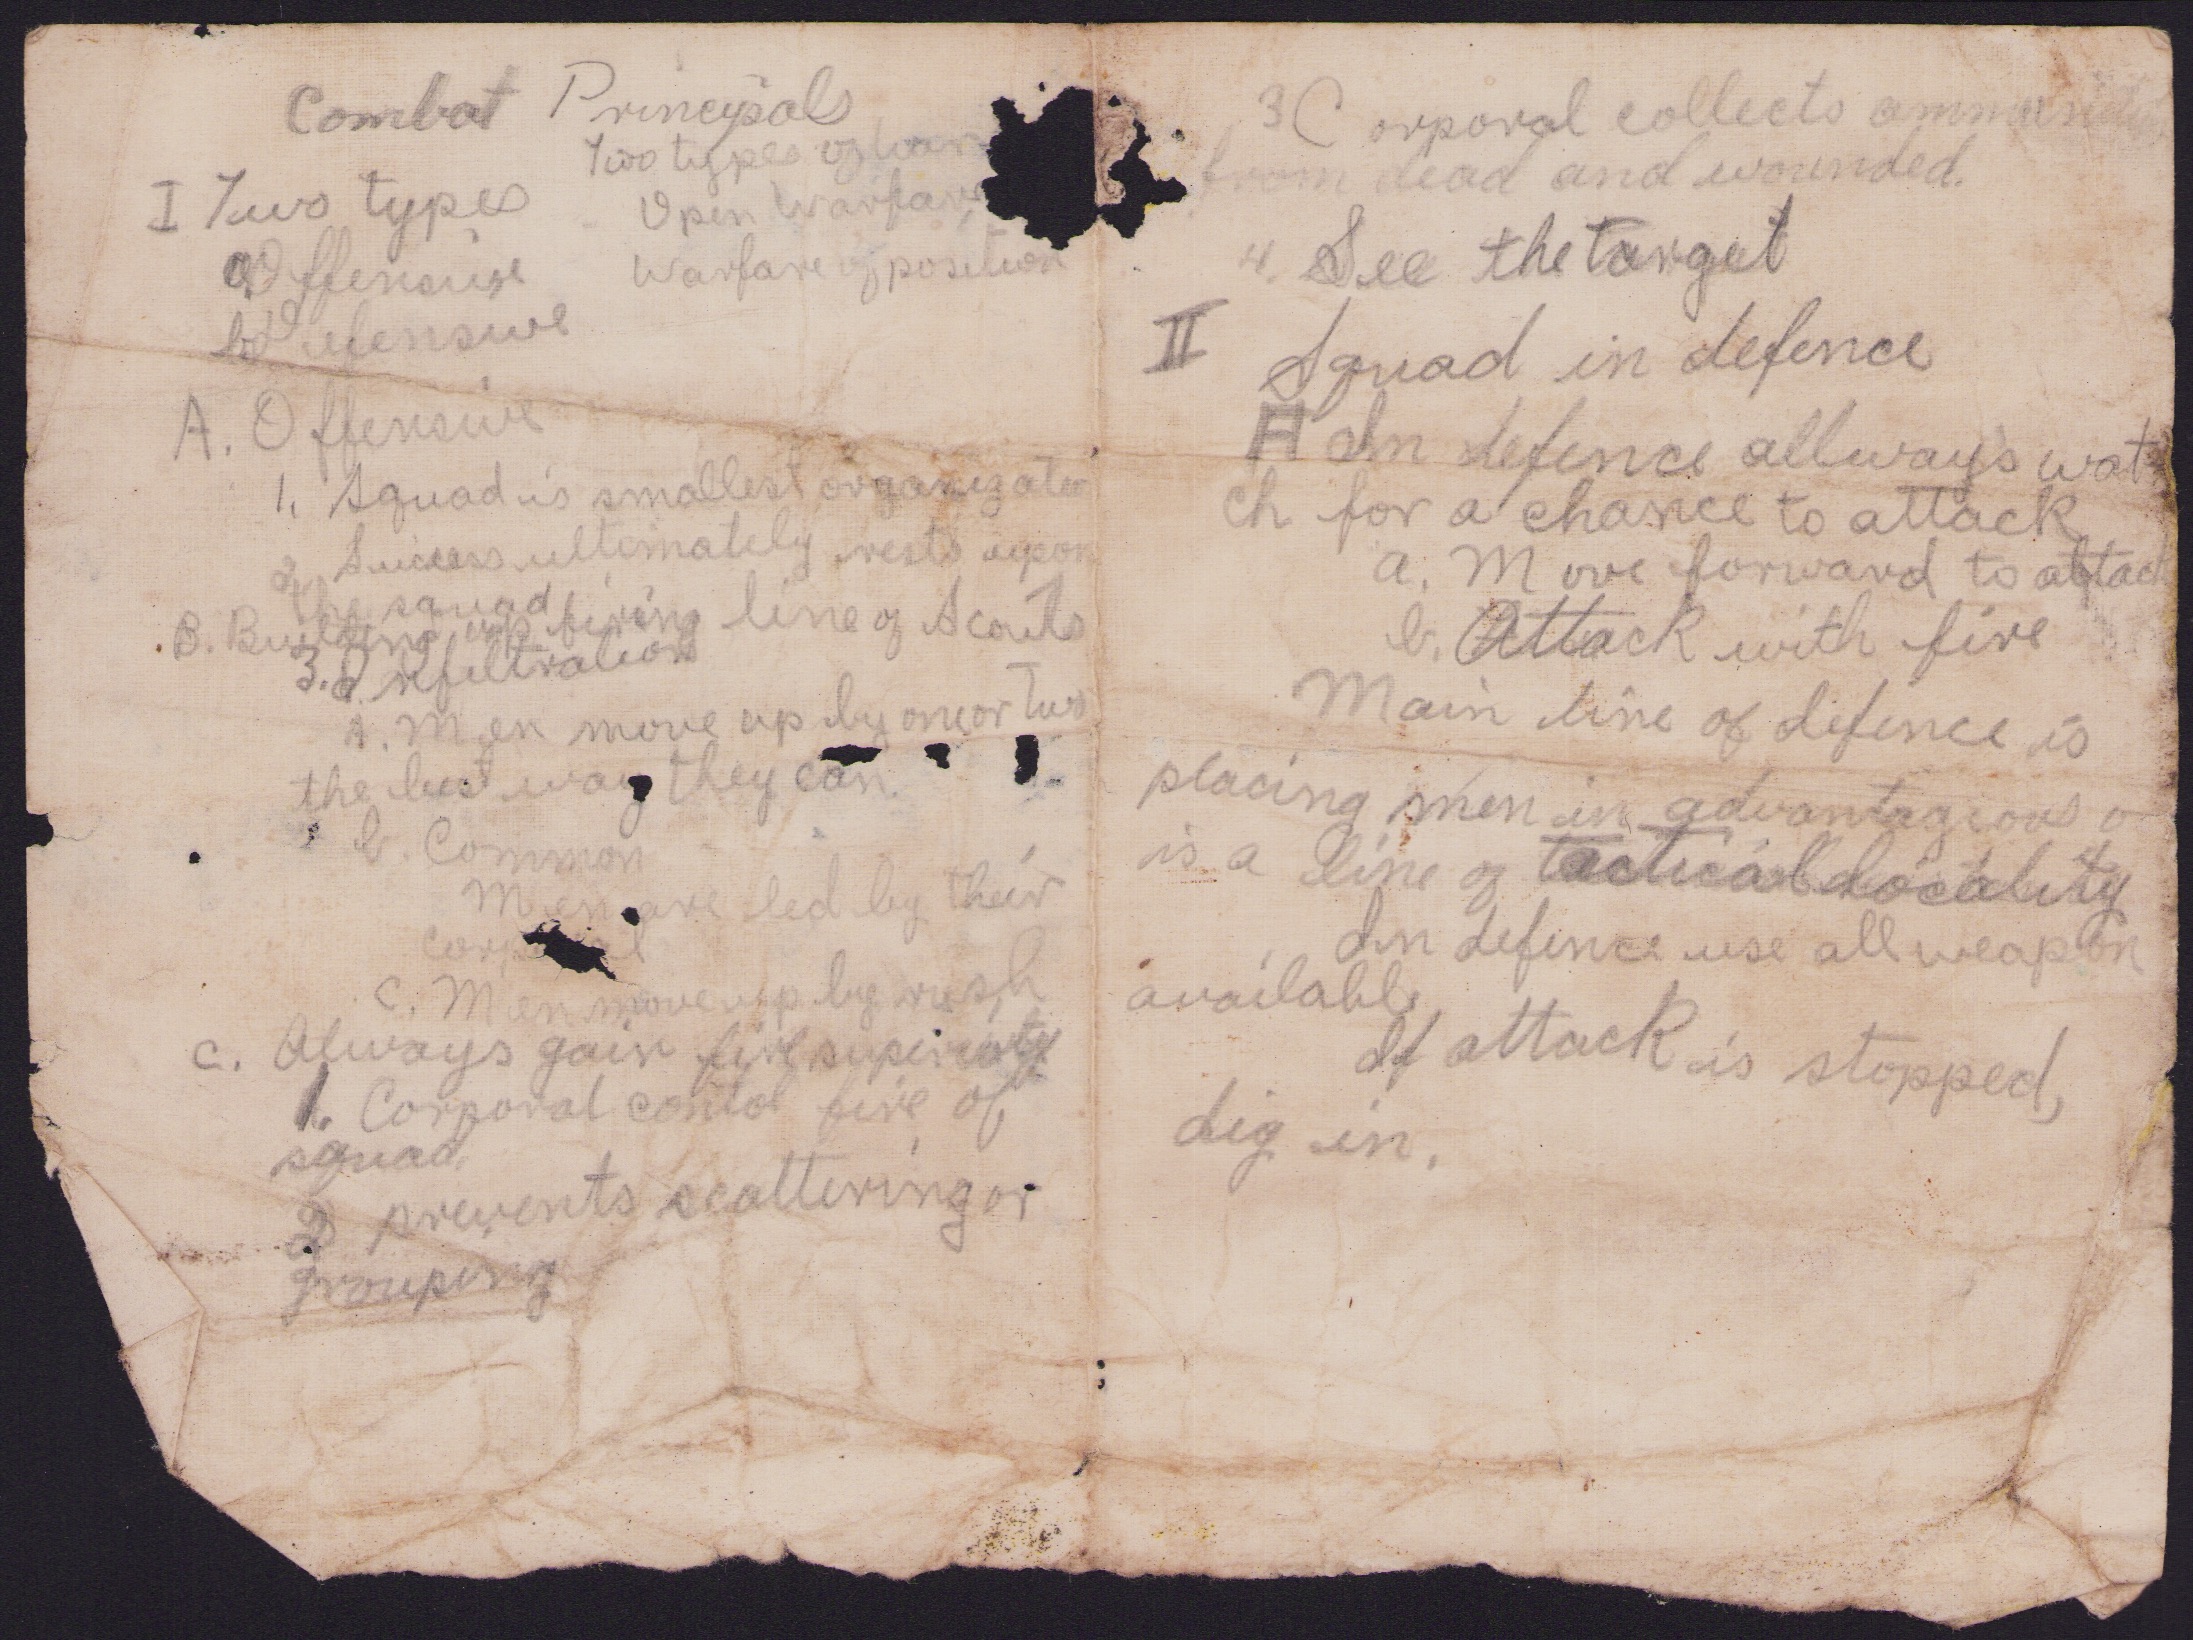 Combat Principals
Two types of war
I Two types
Open Warfare
a Offensive
Warfare of position
b Defensive
A. Offensive
1. Squad is smallest organizatio
2. Success ultimately rests upon
the squad
B. Building up firing line of Scouts
3. Infiltration
A. Men move up by one or two
the best way they can.
b. Common
Men are led by their
corporal
c. Men move up by rush
C. Always gain fire superiority
1. Corporal contol fire of
squad
2 prevents scattering or
grouping
3 Corporal collects ammunition
from dead and wounded.
4. See the target
II Squad in defence
A In defence allways wat-
ch for a chance to attack
a. Move forward to attack
b. Attack with fire
Main line of defence is
placing men in advantagious
is a line of tactical locality
In defence use all weapon
available
If attack is stopped,
dig in.